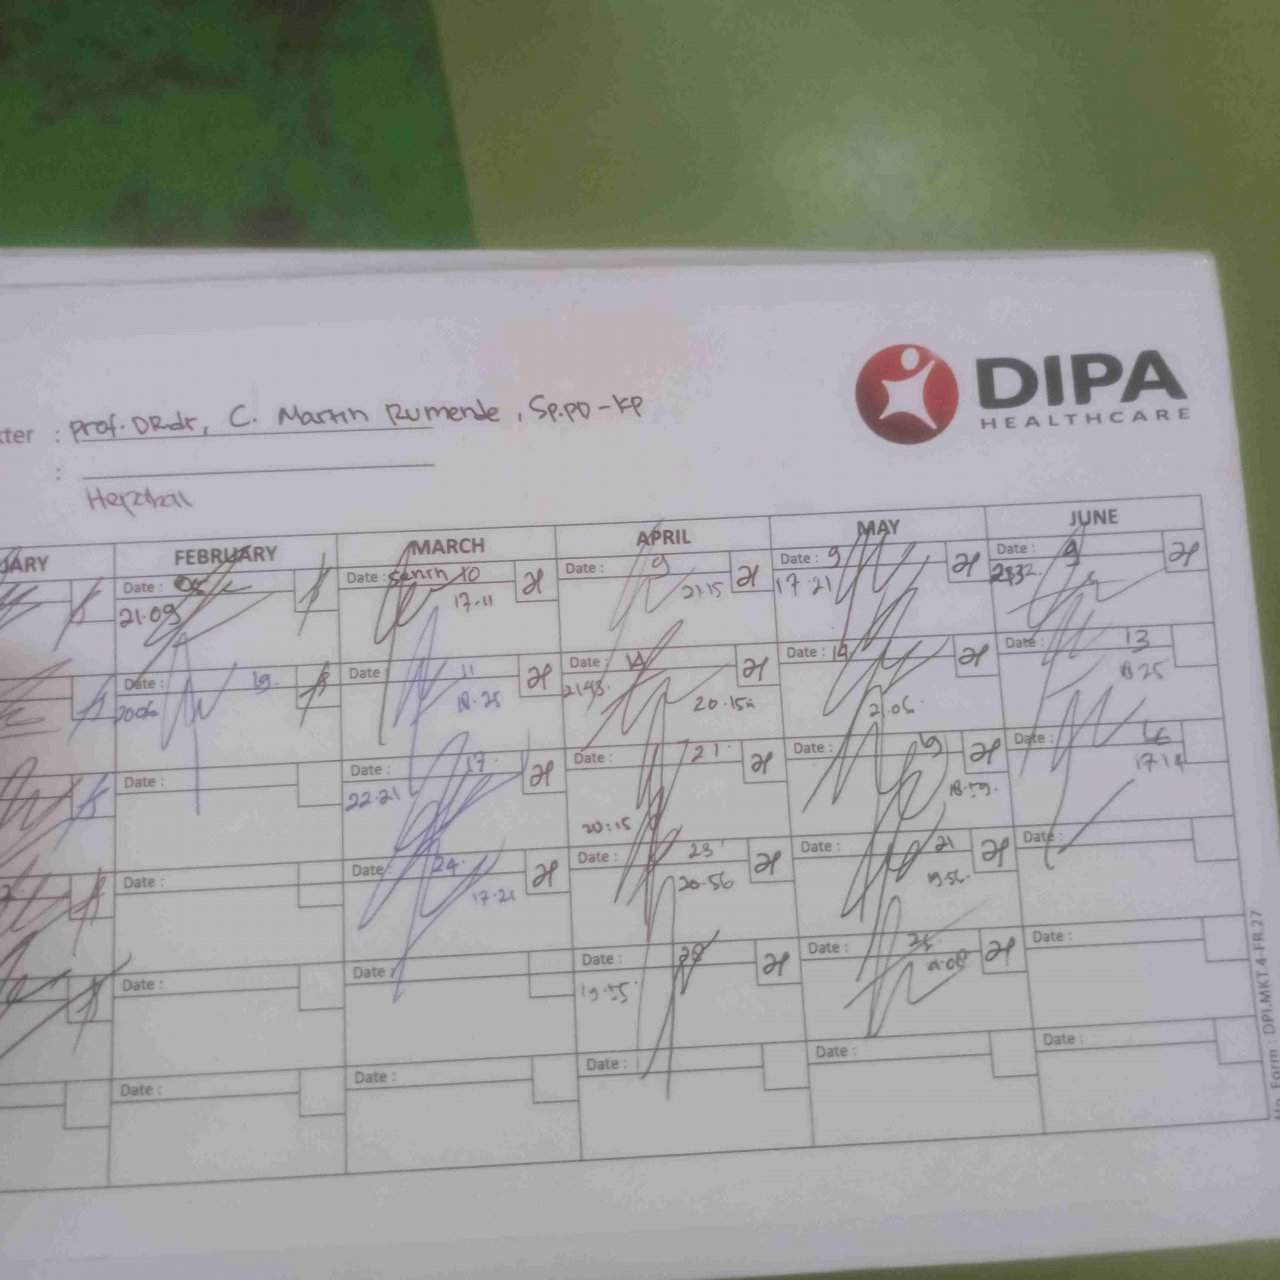 DIPA
HEALTHCARE
: Prof. DR.dr, C. Martin Rumende, Sp.PD-KP
:
FEBRUARY MARCH APRIL MAY JUNE
Date :
21.09
Date : Senin 10
17.11
Date : 9
21.15
Date : 9
17 21
Date : 9
Date : 19.
2006
Date : 11
18.25
Date : 14
20.15
Date : 19
21.06
Date : 13
18.25
Date :
Date : 17.
22.21
Date : 21.
20:15
Date : 19
18.59.
Date : 16
17 14
Date :
Date : 24.
17.21
Date : 23
20.56
Date : 21
19.56.
Date :
Date :
Date :
Date : 28
19.55
Date : 25
Date :
Date :
Date :
Date :
Date :
Date :
No. Form : DPI.MKT.4-FR.27